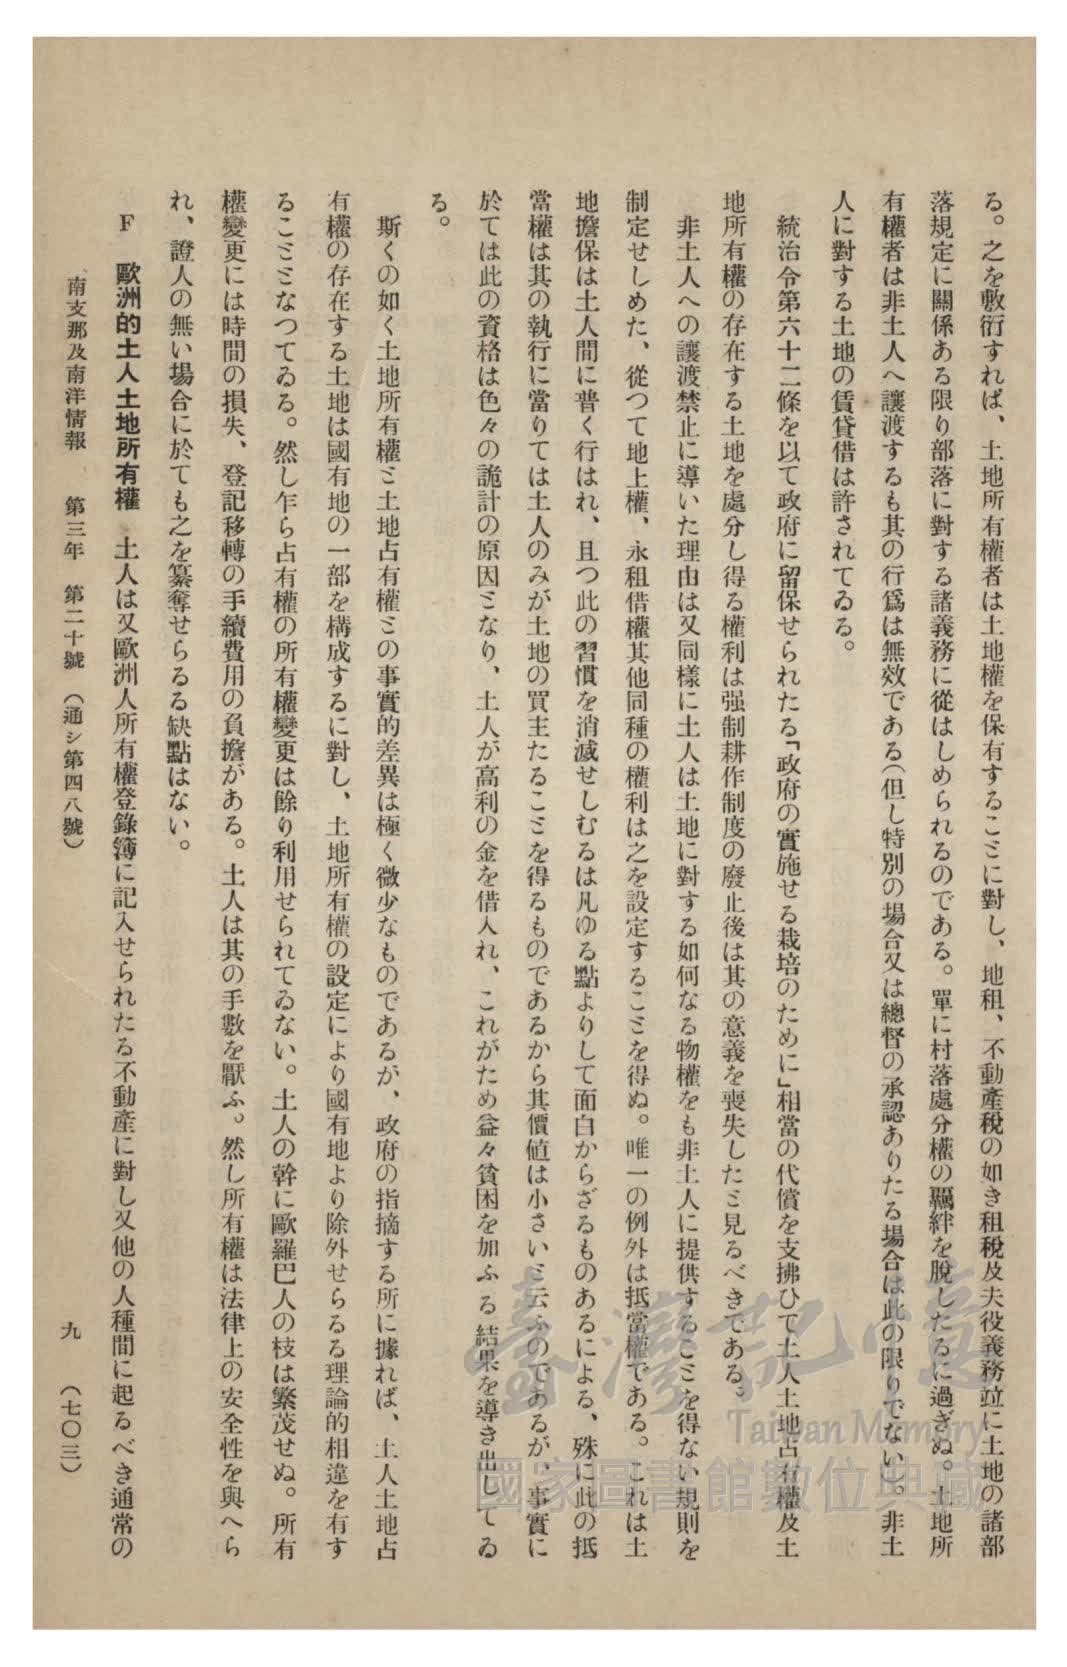 る。之を敷衍すれば、土地所有權者は土地權を保有することに對し、地租、不動產稅の如き租稅及夫役義務竝に土地の諸部
落規定に關係ある限り部落に對する諸義務に從はしめられるのである。單に村落處分權の羈絆を脫したるに過ぎぬ。土地所
有權者は非土人へ讓渡するも其の行爲は無效である(但し特別の場合又は總督の承認ありたる場合は此の限りでない)。非土
人に對する土地の賃貸借は許されてゐる。
統治令第六十二條を以て政府に留保せられたる「政府の實施せる栽培のために」相當の代償を支拂ひて土人土地占有權及土
地所有權の存在する土地を處分し得る權利は强制耕作制度の廢止後は其の意義を喪失したと見るべきである。
非土人への讓渡禁止に導いた理由は又同樣に土人は土地に對する如何なる物權をも非土人に提供することを得ない規則を
制定せしめた、從つて地上權、永租借權其他同種の權利は之を設定することを得ぬ。唯一の例外は抵當權である。これは土
地擔保は土人間に普く行はれ、且つ此の習慣を消滅せしむるは凡ゆる點よりして面白からざるものあるによる、殊に此の抵
當權は其の執行に當りては土人のみが土地の買主たることを得るものであるから其價値は小さいと云ふのであるが、事實に
於ては此の資格は色々の詭計の原因となり、土人が高利の金を借入れ、これがため益々貧困を加ふる結果を導き出してゐ
る。
斯くの如く土地所有權と土地占有權との事實的差異は極く微少なものであるが、政府の指摘する所に據れば、土人土地占
有權の存在する土地は國有地の一部を構成するに對し、土地所有權の設定により國有地より除外せらるる理論的相違を有す
ることとなつてゐる。然し乍ら占有權の所有權變更は餘り利用せられてゐない。土人の幹に歐羅巴人の枝は繁茂せぬ。所有
權變更には時間の損失、登記移轉の手續費用の負擔がある。土人は其の手數を厭ふ。然し所有權は法律上の安全性を與へら
れ、證人の無い場合に於ても之を簒奪せらるる缺點はない。
F 歐洲的土人土地所有權 土人は又歐洲人所有權登錄簿に記入せられたる不動產に對し又他の人種間に起るべき通常の
南支那及南洋情報 第三年 第二十號 (通シ第四八號) 九 (七〇三)
臺灣記憶
Taiwan Memory
國家圖書館數位典藏